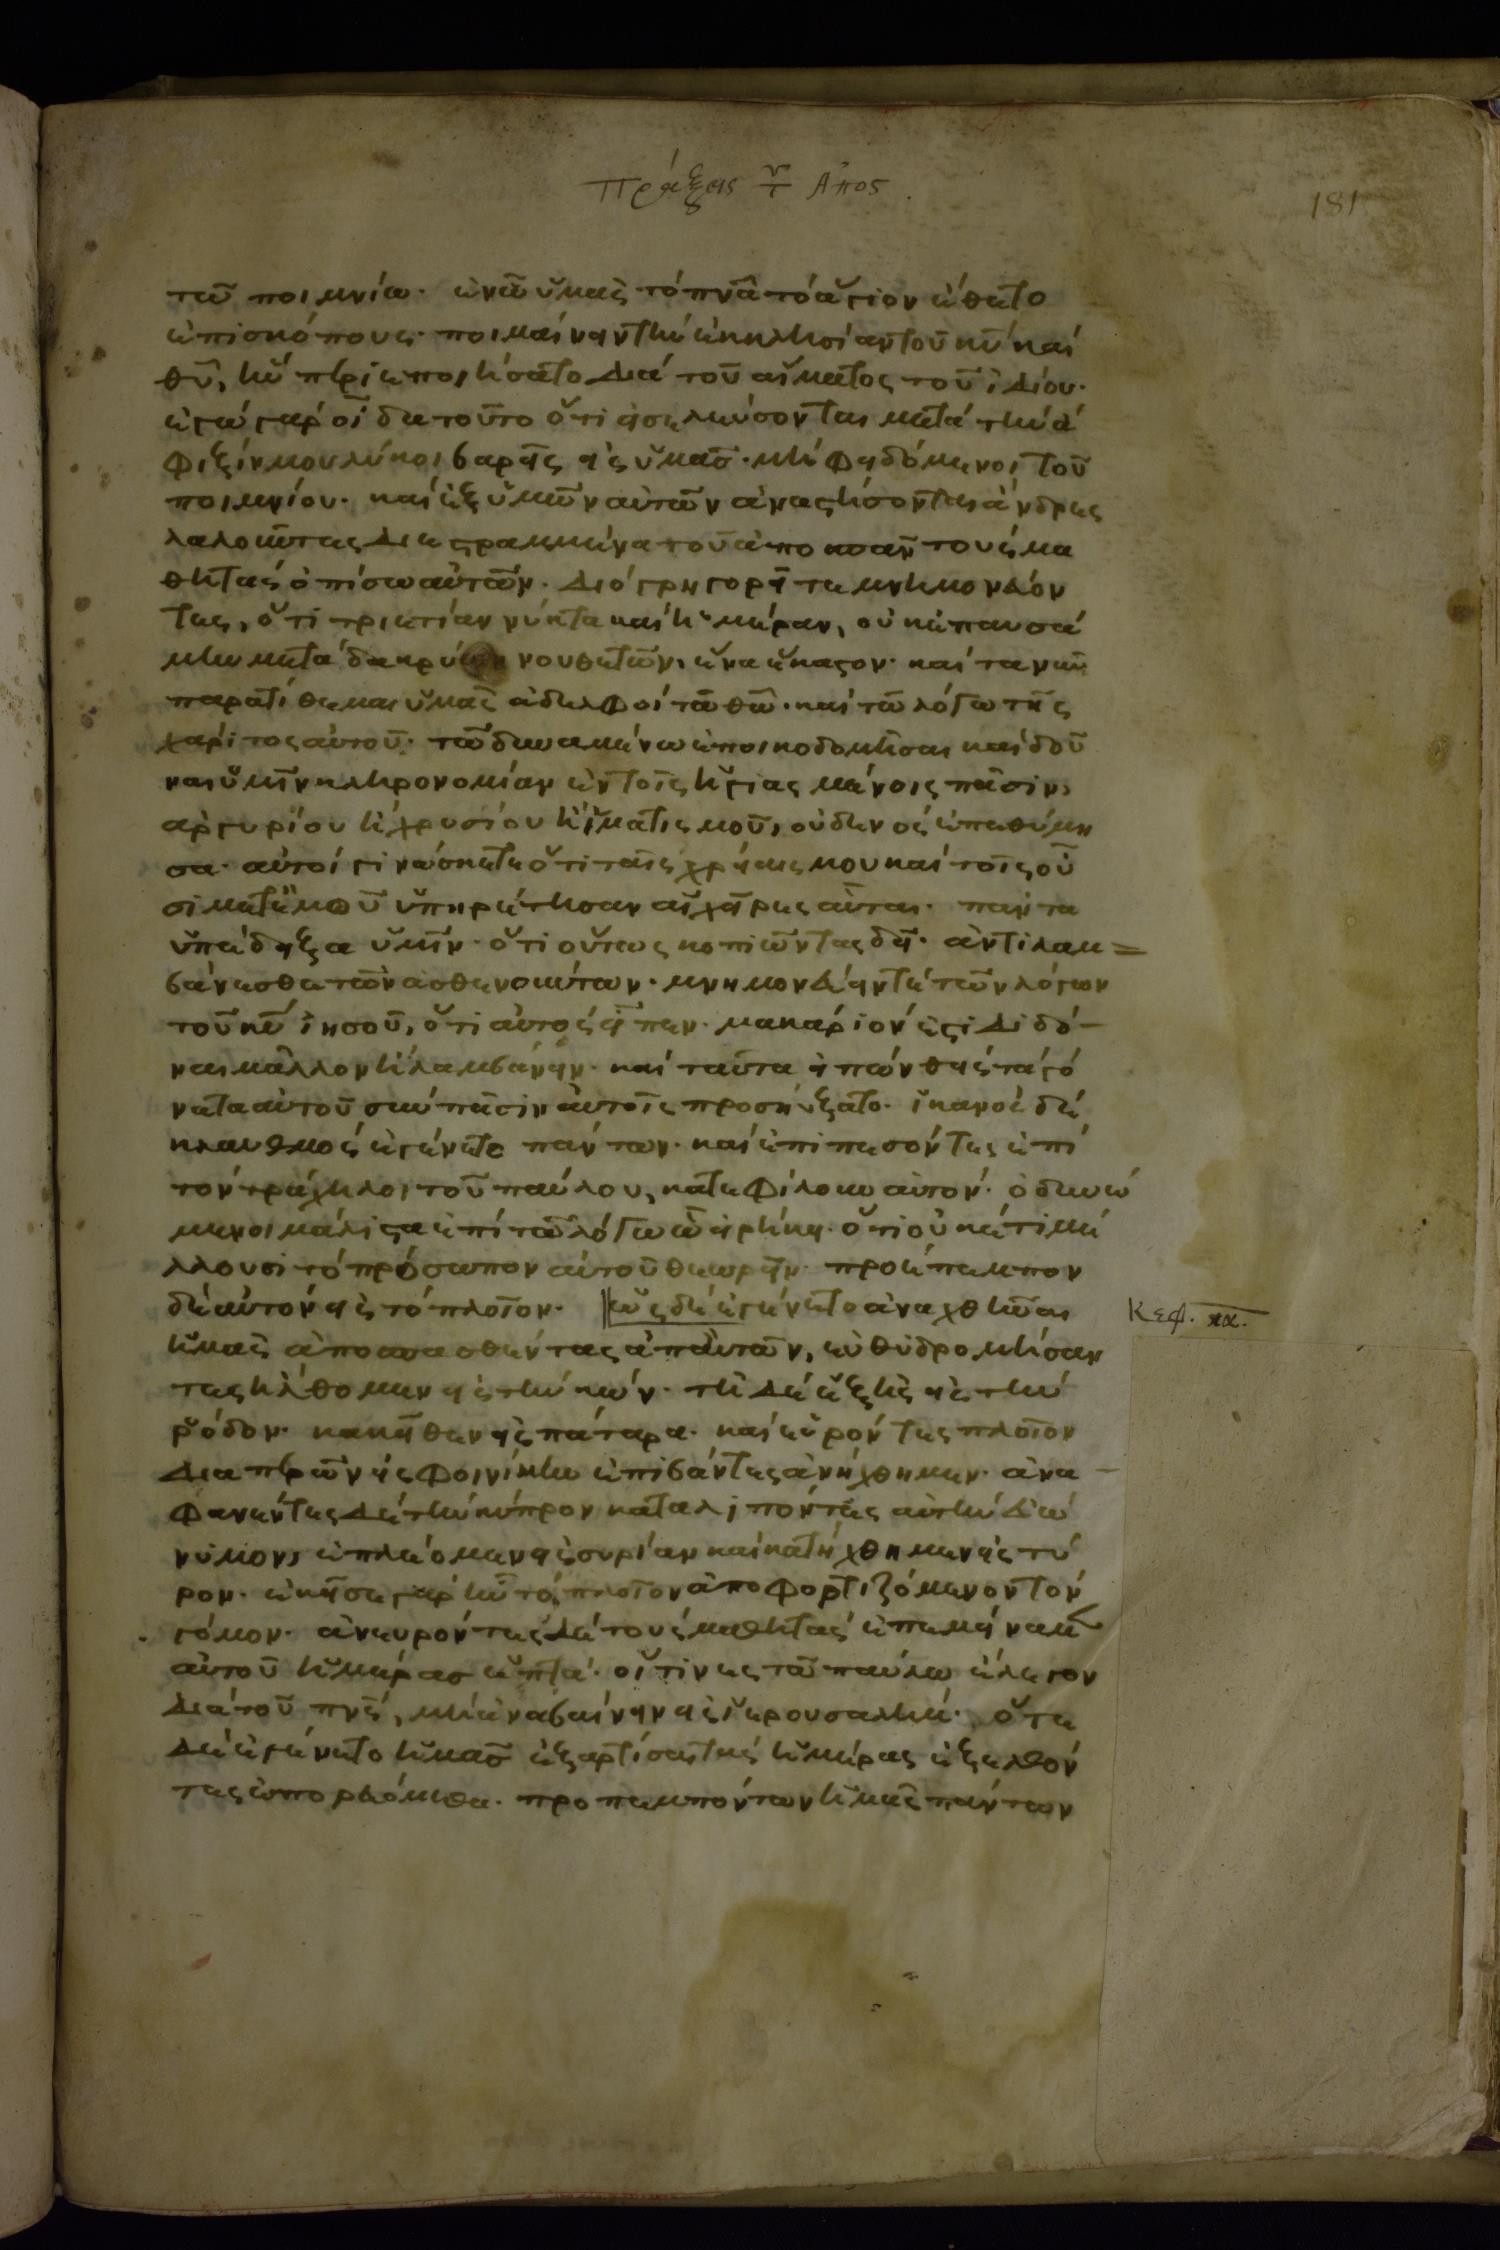 Πράξεις τ Ἀπος
181
τῶ ποιμνίω· ἐν ῶ ὑμᾶς τὸ πνᾶ τὸ ἅγιον ἔθετο
ἐπισκόπους· ποιμαίνειν τὴν ἐκκλησίαν τοῦ κυ καὶ
θυ, ἣν περιεποιήσατο διὰ τοῦ αἵματος τοῦ ἰδίου·
ἐγὼ γὰρ οἶδα τοῦτο ὅτι εἰσελεύσονται μετὰ τὴν ἄ
φιξίν μου λύκοι βαρεῖς εἰς ὑμᾶσ· μὴ φειδόμενοι τοῦ
ποιμνίου· καὶ ἐξ ὑμῶν αὐτῶν ἀναστήσονται ἄνδρες
λαλοῦντες διεστραμμένα τοῦ ἀποσπᾶν τοὺς μα
θητὰς ὀπίσω αὐτῶν· διὸ γρηγορεῖτε μνημονεύον
τες, ὅτι τριετίαν νύκτα καὶ ἡμέραν, οὐκ ἐπαυσά
μην μετὰ δακρύων νουθετῶν, ἕνα ἕκαστον· καὶ τανῦν
παρατίθεμαι ὑμᾶς ἀδελφοὶ τῶ θῶ· καὶ τῶ λόγω τῆς
χάριτος αὐτοῦ· τῶ δυναμένω ἐποικοδομῆσαι καὶ δοῦ
ναι ὑμῖν κληρονομίαν ἐν τοῖς ἡγιασμένοις πᾶσιν,
ἀργυρίου ἢ χρυσίου ἢ ἱματισμοῦ, οὐδενὸς ἐπεθύμη
σα· αὐτοὶ γινώσκετε ὅτι ταῖς χρείαις μου καὶ τοῖς οὖ
σι μετ' ἐμοῦ ὑπηρέτησαν αἱ χεῖρες αὗται· πάντα
ὑπέδειξα ὑμῖν· ὅτι οὕτως κοπιῶντας δεῖ· ἀντιλαμ=
βάνεσθαι τῶν ἀσθενούντων· μνημονεύειν τὲ τῶν λόγων
τοῦ κυ ἰησοῦ, ὅτι αὐτὸς εἶπεν· μακάριόν ἐστι διδό-
ναι μᾶλλον ἢ λαμβάνειν· καὶ ταῦτα εἰπὼν θεὶς τὰ γό
νατα αὐτοῦ σὺν πᾶσιν αὐτοῖς προσηύξατο· ἱκανὸς δὲ
κλαυθμὸς ἐγένετο πάντων· καὶ ἐπιπεσόντες ἐπὶ
τὸν τράχηλον τοῦ παύλου, κατεφίλουν αὐτόν· ὀδυνώ
μενοι μάλιστα ἐπὶ τῶ λόγω ὦ εἰρήκει· ὅτι οὐκέτι μέ
λλουσι τὸ πρόσωπον αὐτοῦ θεωρεῖν· προέπεμπον
δὲ αὐτὸν εἰς τὸ πλοῖον· ὡς δὲ ἐγένετο ἀναχθῆναι
Κεφ. κα.
ἡμᾶς ἀποσπασθέντας ἀπ' αὐτῶν, εὐθυδρομήσαν
τες ἤλθομεν εἰς τὴν κών· τῆ δὲ ἑξῆς εἰς τὴν
ρόδον· κακεῖθεν εἰς πάταρα· καὶ εὑρόντες πλοῖον
διαπερῶν εἰς φοινίκην ἐπιβάντες ἀνήχθημεν· ἀνα-
φανέντες δὲ τὴν κύπρον καταλιπόντες αὐτὴν εὐώ
νυμον, ἐπλέομεν εἰς συρίαν καὶ κατήχθημεν εἰς τύ
ρον· ἐκεῖσε γὰρ ἦν τὸ πλοῖον ἀποφορτιζόμενον τὸν
γόμον· ἀνευρόντες δὲ τοὺς μαθητὰς ἐπεμείναμεν
αὐτοῦ ἡμέρασ ἑπτά· οἵτινες τῶ παύλω ἔλεγον
διὰ τοῦ πνς, μὴ ἀναβαίνειν εἰς ἱερουσαλήμ· ὅτε
δὲ ἐγένετο ἡμᾶσ ἐξαρτίσαι τὰς ἡμέρας ἐξελθόν
τες ἐπορευόμεθα· προπεμπόντων ἡμᾶς πάντων